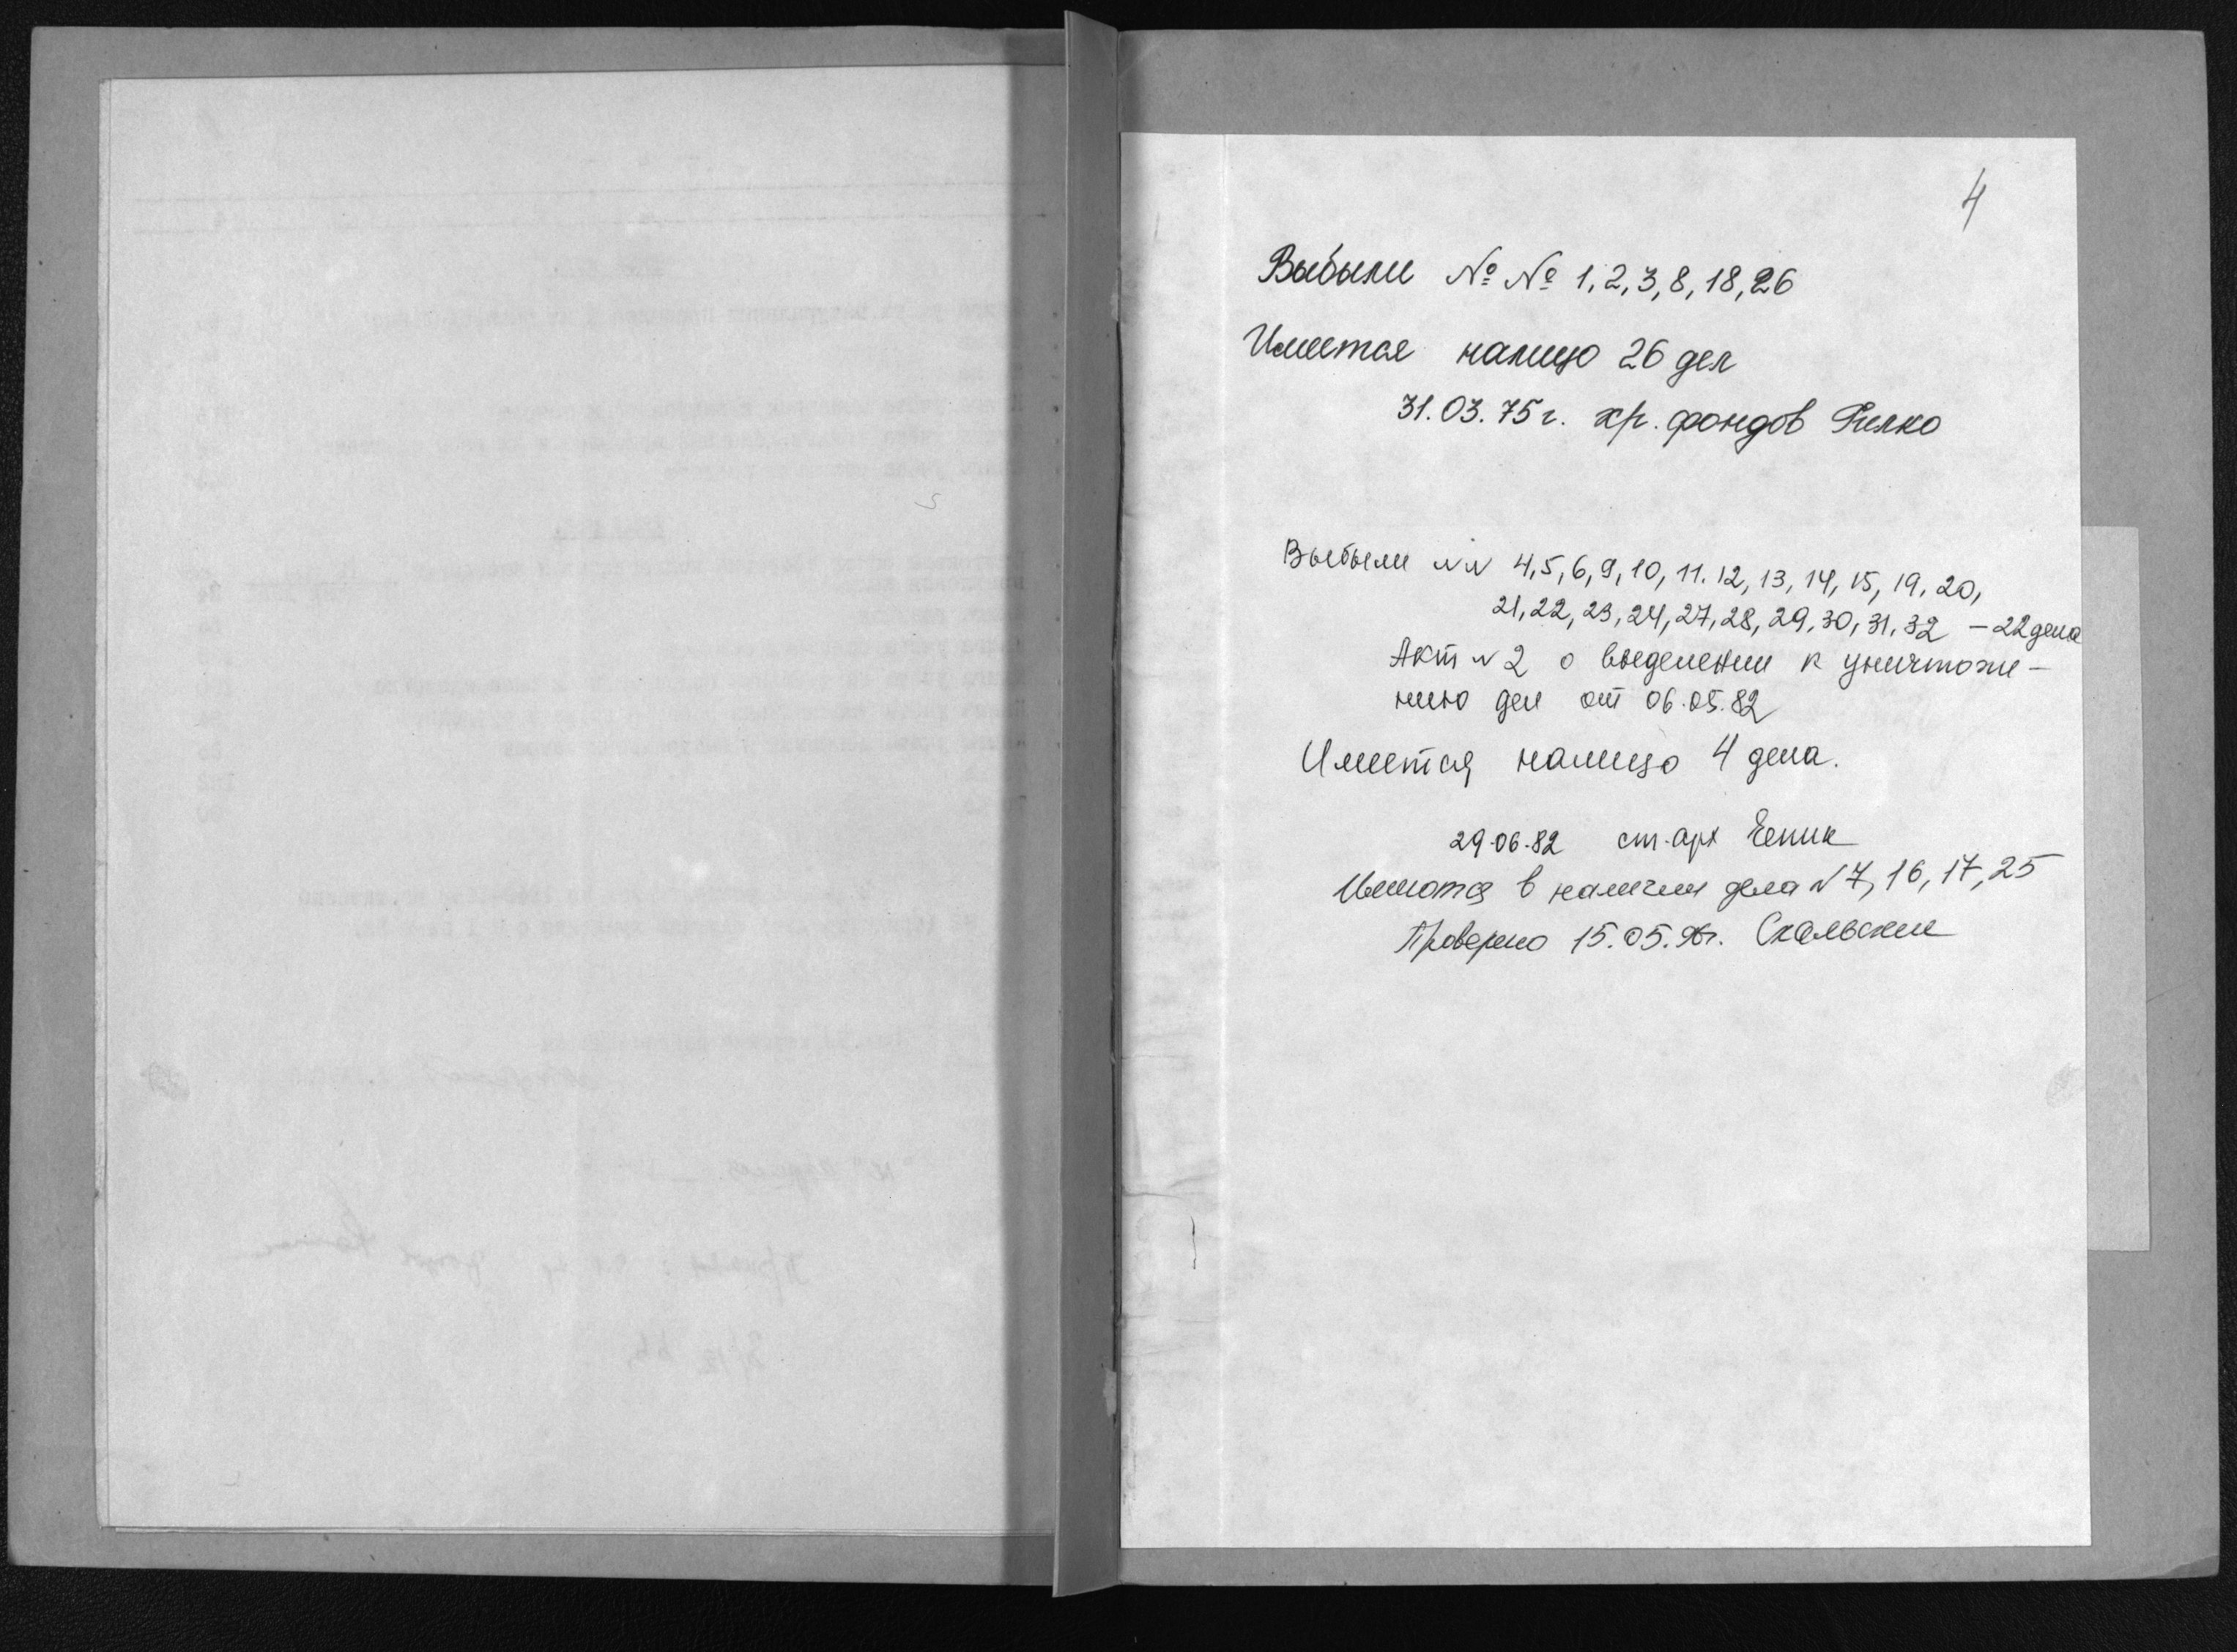 4
Выбыли №№ 1, 2, 3, 8, 18, 26
Имеется налицо 26 дел
31.03.75г. хр. фондов Рилко
Выбыли NN 4, 5, 6, 9, 10, 11. 12, 13, 14, 15, 19, 20,
21, 22, 23, 24, 27, 28, 29, 30, 31, 32 – 22 дела
Акт N 2 о выделении к уничтоже–
нию дел от 06.05.82
Имеется налицо 4 дела.
29.06.82 ст. арх
Имеются в наличии дела N 7, 16, 17, 25
Проверено 15.05.